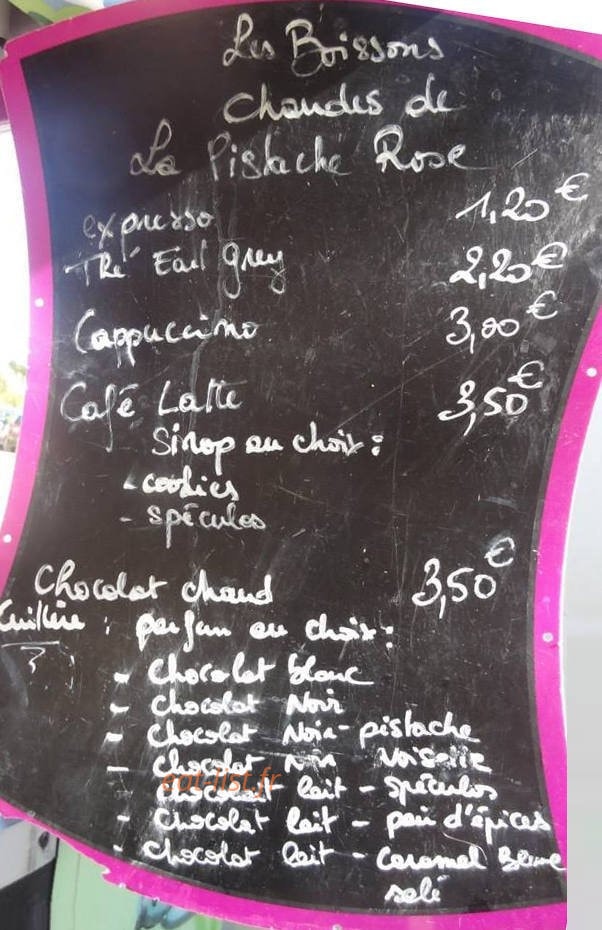 Les Boissons
Chaudes de
La Pistache Rose
expresso 1,20 €
Thé Earl Grey 2,20 €
Cappuccino 3,00 €
Café Latte 3,50 €
Sirop au choix :
- cookies
- spéculos
Chocolat chaud 3,50 €
Cuillère : parfum au choix :
- Chocolat blanc
- Chocolat Noir
- Chocolat Noir - pistache
- Chocolat Noir Noisette
eat-list.fr
Chocolat lait - spéculos
- Chocolat lait - pain d'épices
- Chocolat lait - Caramel Beurre
salé